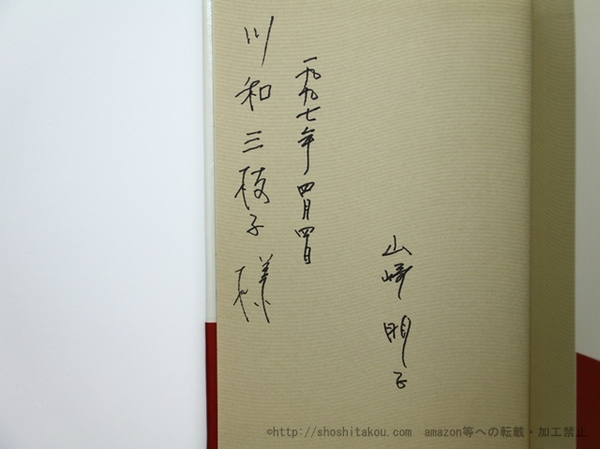 川和三枝子様
一九九七年四月四日
山崎明子
©http://shoshitakou.com amazon等への転載・加工禁止